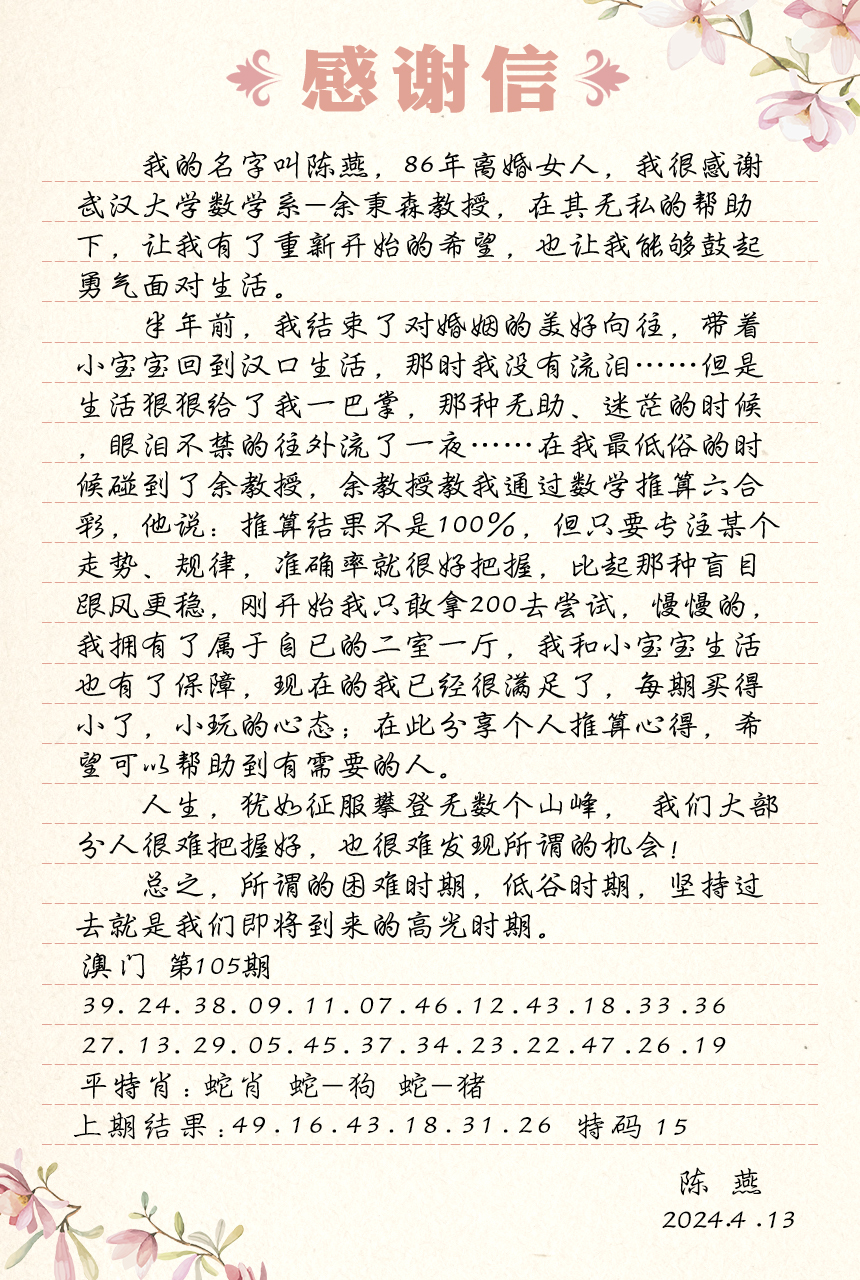 感谢信
我的名字叫陈燕，86年离婚女人，我很感谢
武汉大学数学系—余秉森教授，在其无私的帮助
下，让我有了重新开始的希望，也让我能够鼓起
勇气面对生活。
半年前，我结束了对婚姻的美好向往，带着
小宝宝回到汉口生活，那时我没有流泪……但是
生活狠狠给了我一巴掌，那种无助、迷茫的时候
，眼泪不禁的往外流了一夜……在我最低俗的时
候碰到了余教授，余教授教我通过数学推算六合
彩，他说：推算结果不是100%，但只要专注某个
走势、规律，准确率就很好把握，比起那种盲目
跟风更稳，刚开始我只敢拿200去尝试，慢慢的，
我拥有了属于自已的二室一厅，我和小宝宝生活
也有了保障，现在的我已经很满足了，每期买得
小了，小玩的心态；在此分享个人推算心得，希
望可以帮助到有需要的人。
人生，犹如征服攀登无数个山峰， 我们大部
分人很难把握好，也很难发现所谓的机会！
总之，所谓的困难时期，低谷时期，坚持过
去就是我们即将到来的高光时期。
澳门 第105期
39.24.38.09.11.07.46.12.43.18.33.36
27.13.29.05.45.37.34.23.22.47.26.19
平特肖：蛇肖 蛇—狗 蛇—猪
上期结果：49.16.43.18.31.26 特码 15
陈 燕
2024.4.13